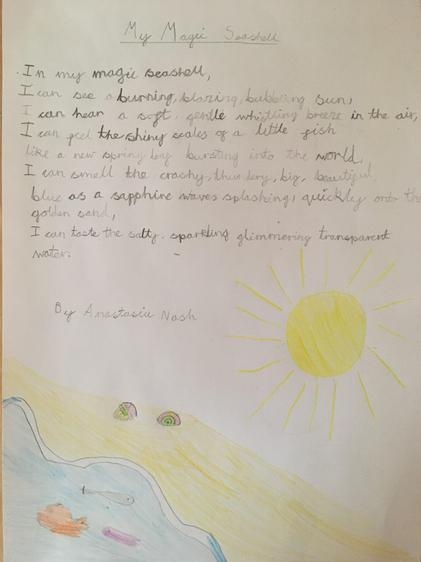 My Magic Seashell
In my magic seashell,
I can see a burning, blazing, bubbling sun,
I can hear a soft, gentle whistling breeze in the air,
I can feel the shiny scales of a little fish
like a new spring bursting into the world,
I can smell the crashy, thundery, big, beautiful,
blue as a sapphire waves splashing, quickly onto the
golden sand,
I can taste the salty, sparkling glimmering transparent
water.
By Anastasia Nash